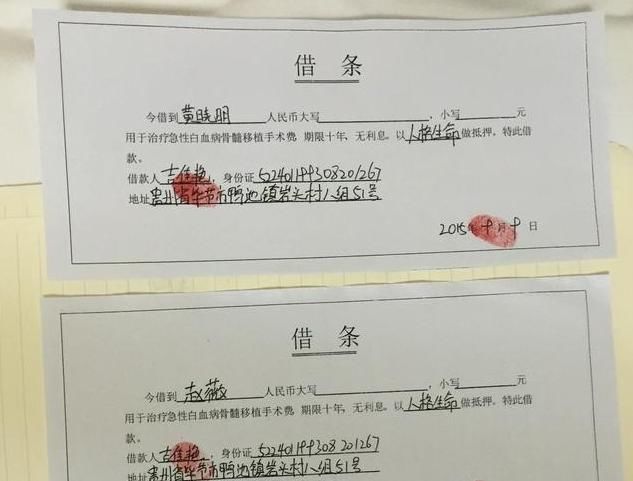 借条
今借到黄晓明 人民币大写 ，小写 元
用于治疗急性白血病骨髓移植手术费 期限十年，无利息。以人格生命做抵押。特此借
款。
借款人吉佳艳，身份证522401199308201267
地址贵州省毕节市鸭池镇岩头村八组51号
2015年 月 日
借条
今借到赵薇 人民币大写 ，小写 元
用于治疗急性白血病骨髓移植手术费 期限十年，无利息。以人格生命做抵押。特此借
款。
借款人吉佳艳，身份证522401199308201267
地址贵州省毕节市鸭池镇岩头村八组51号